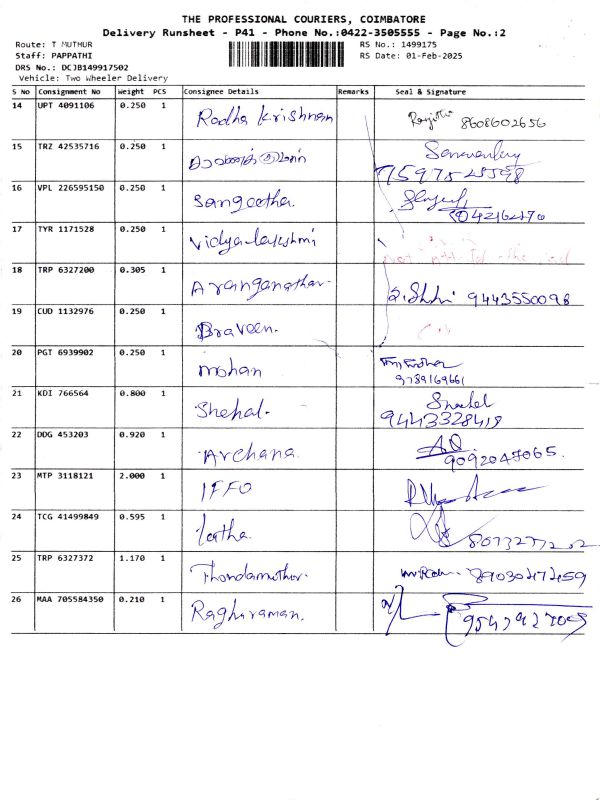 THE PROFESSIONAL COURIERS, COIMBATORE
Delivery Runsheet - P41 - Phone No.:0422-3505555 - Page No.:2
Route: T MUTHUR
RS No.: 1499175
Staff: PAPPATHI
RS Date: 01-Feb-2025
DRS No.: DCJB149917502
Vehicle: Two Wheeler Delivery
S No Consignment No Weight PCS Consignee Details Remarks Seal & Signature
14 UPT 4091106 0.250 1 Radha Krishnan 8608602656
15 TRZ 42535716 0.250 1
16 VPL 226595150 0.250 1 Sangeetha.
17 TYR 1171528 0.250 1 Vidyalakshmi
18 TRP 6327200 0.305 1 Aranganathan. 9443550098
19 CUD 1132976 0.250 1 Braveen.
20 PGT 6939902 0.250 1 mohan
9789169661
21 KDI 766564 0.800 1 Shehal. Snehal
9443328418
22 DDG 453203 0.920 1 Archana.
9092047065.
23 MTP 3118121 2.000 1 IFFO
24 TCG 41499849 0.595 1 latha.
25 TRP 6327372 1.170 1 Thondamuthur. 8903047459
26 MAA 705584350 0.210 1 Raghuraman.